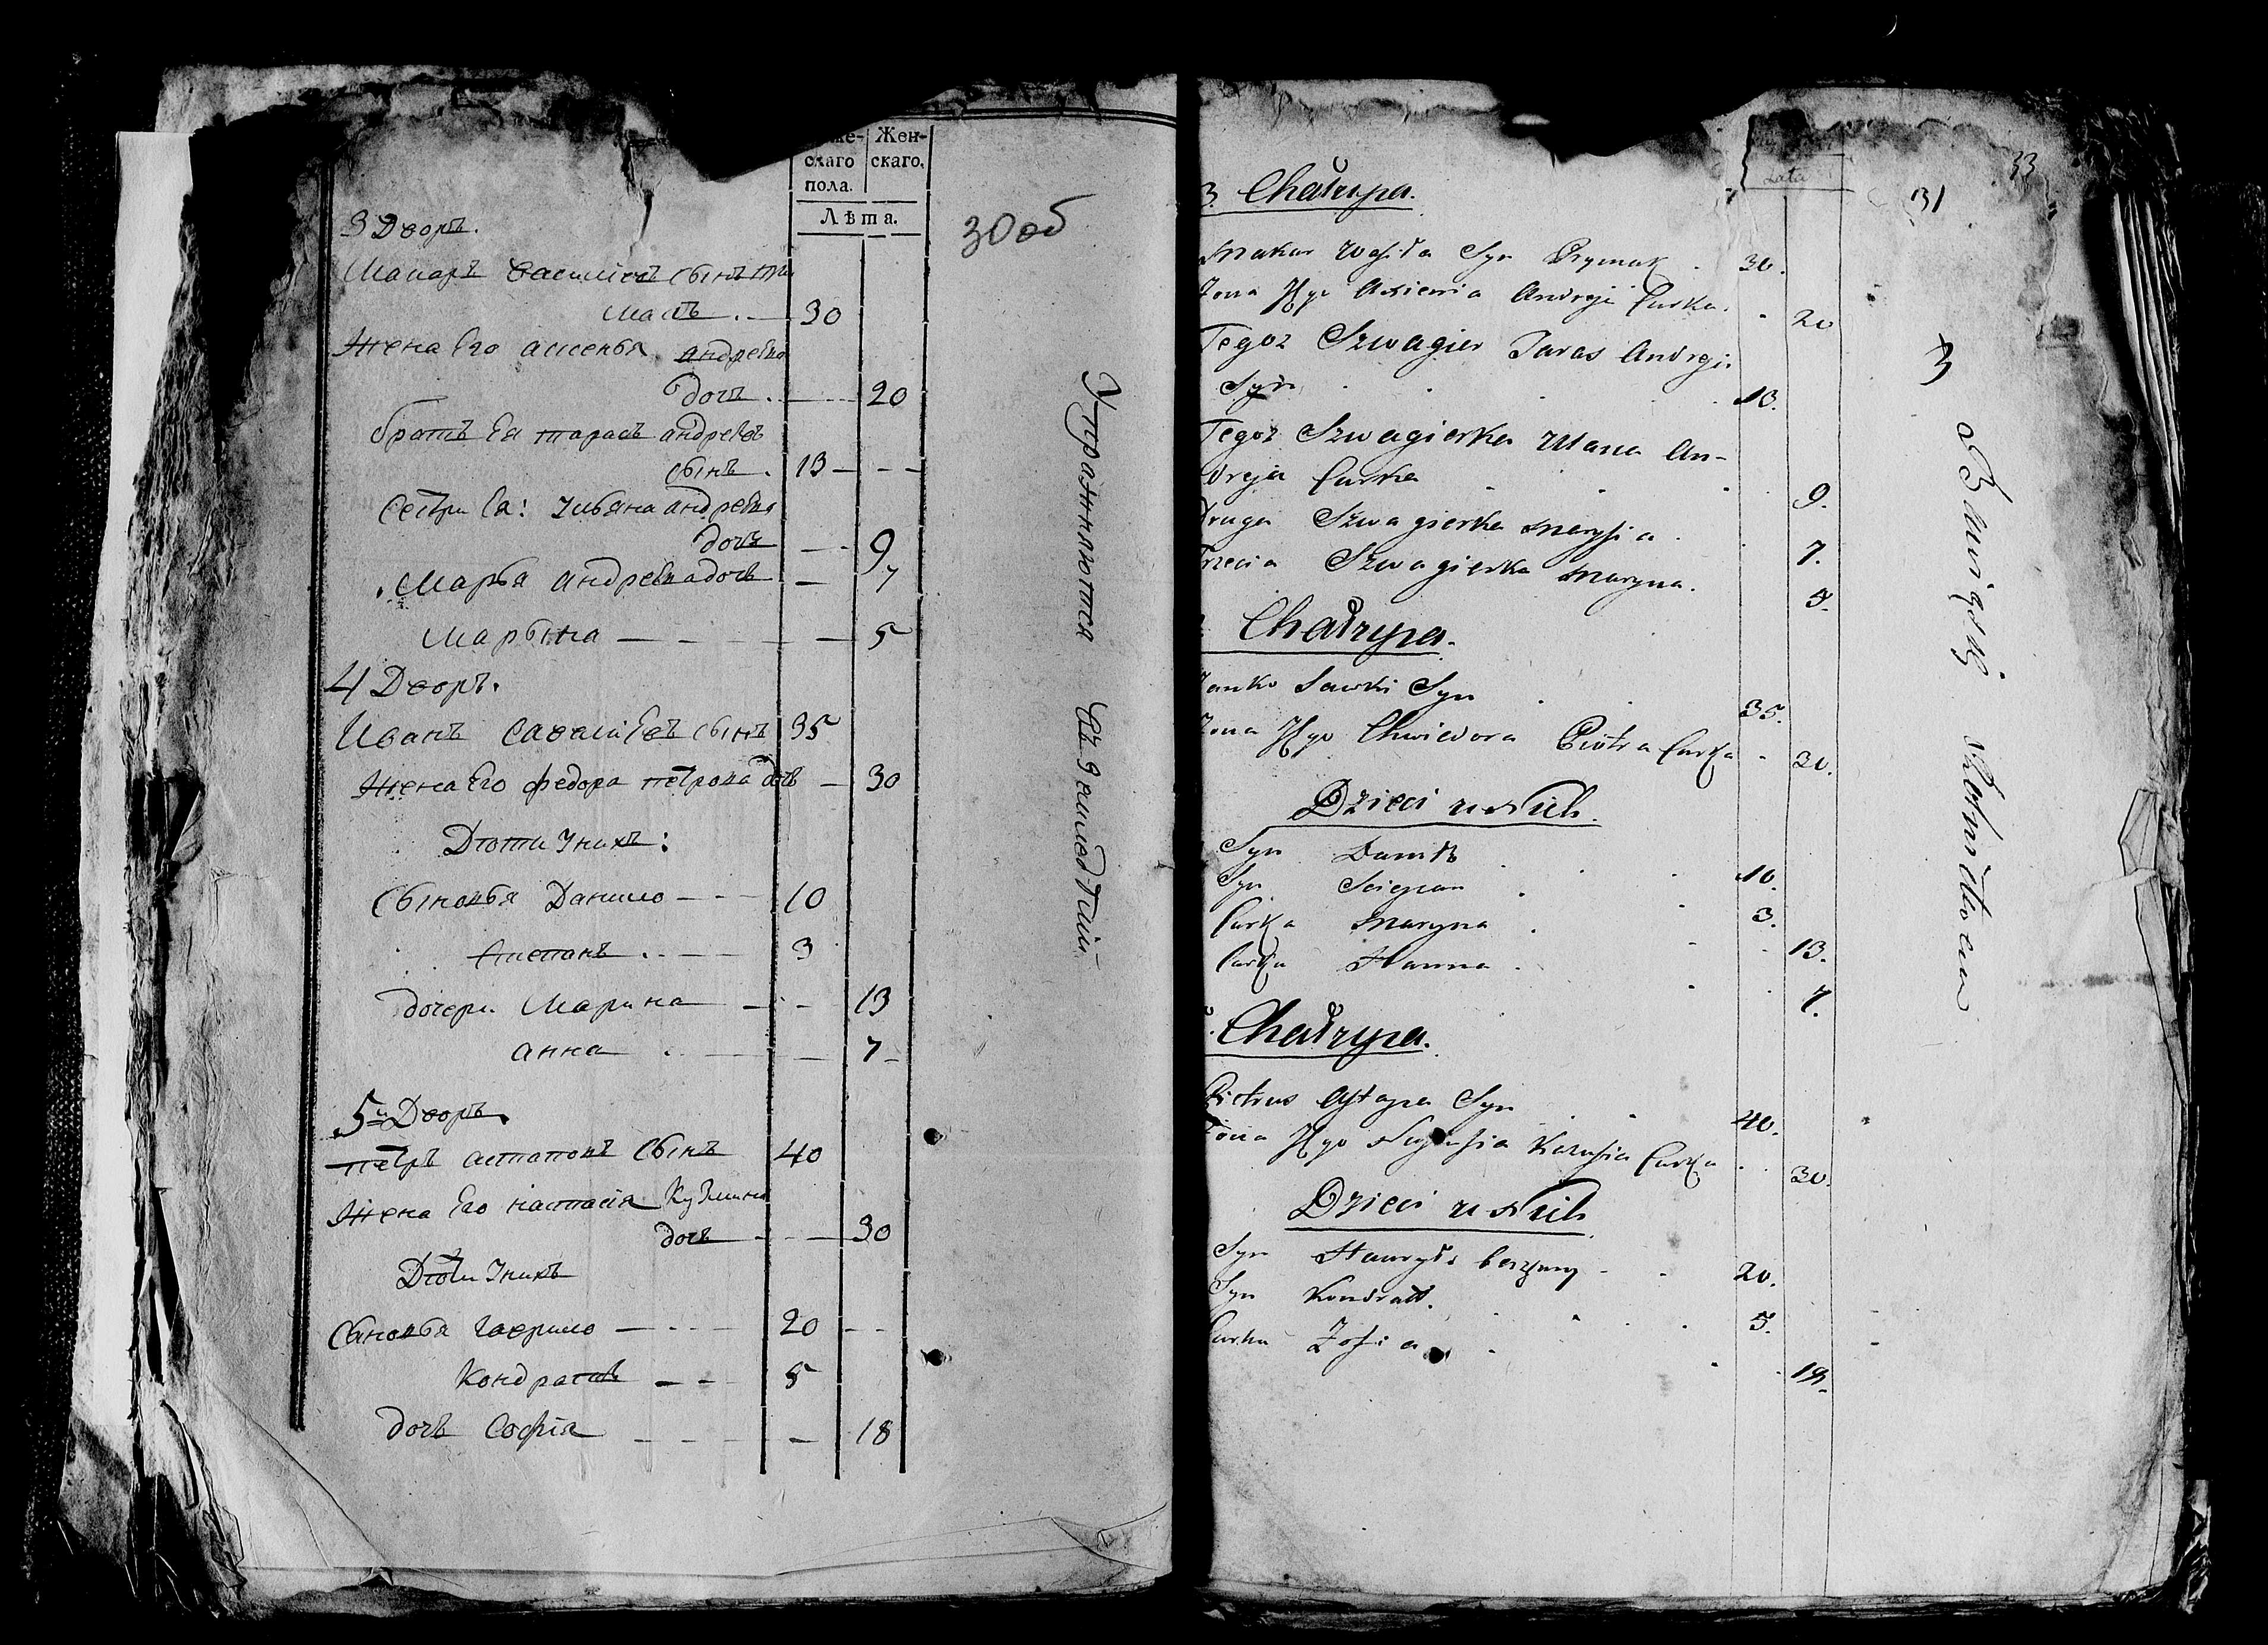 Жен-
скаго
скаго.
пола.
Лѣта.
30 об
3 Дворъ.
Макаръ Василіевъ сынъ При
макъ . — 30
Жена Его Аксенья Андреева
дочь . — 20
братъ Ея тарасъ андреевъ
сынъ . 13 — - -
Сестри Ея: Ульяна андреева
дочь — - 9
Марья андреева дочь — 7
Марына — - - — 5
4 Дворъ.
Иванъ Савастіевъ сынъ 35
Жена Его федора петрова дочь — 30
Дѣти Ихъ:
Сыновья Данило - - - 10
Степанъ . - — 3
дочери Марина — - - 13
анна . - — — 7 -
5й Дворъ.
петръ астаповъ Сынъ 40
Жена Его настасія Кузмина
дочь - - — 30
Дѣти Ихъ
Сыновья гаврило — - - - 20 - -
Кондратъ - - - 5
дочь Софія — - - - — 18
Упражняются въ земледѣліи
31
33
Lata
3. Chałupa.
Makar Wasila Syn Prymak . 30.
Zona Jego Axienia Andreja Curka. - 20
Tegoż Szwagier Taras Andreja
Syn . . . 13.
Tegoż Szwagierka Ulana An-
dreja Curka . . . 9.
Druga Szwagierka Marysia . . 7.
Trzecia Szwagierka Maryna. 5.
Chałupa.
Janko Sawki Syn . . 35.
Zona Jego Chwiedora Piotra Curka - 30.
Dzieci u Nich.
Syn Daniło . . . 10.
Syn Sciepan . . 3.
Curka Maryna . . - 13.
Curka Hanna . . . 7.
Chałupa.
Pietrus Astapa Syn . . 40.
Zona Jego Nastasia Kazusia Curka . 30.
Dzieci u Nich
Syn Hawryło - - 20.
Syn Kondratt. . . . 5.
Curka Zofia . . - 18.
3